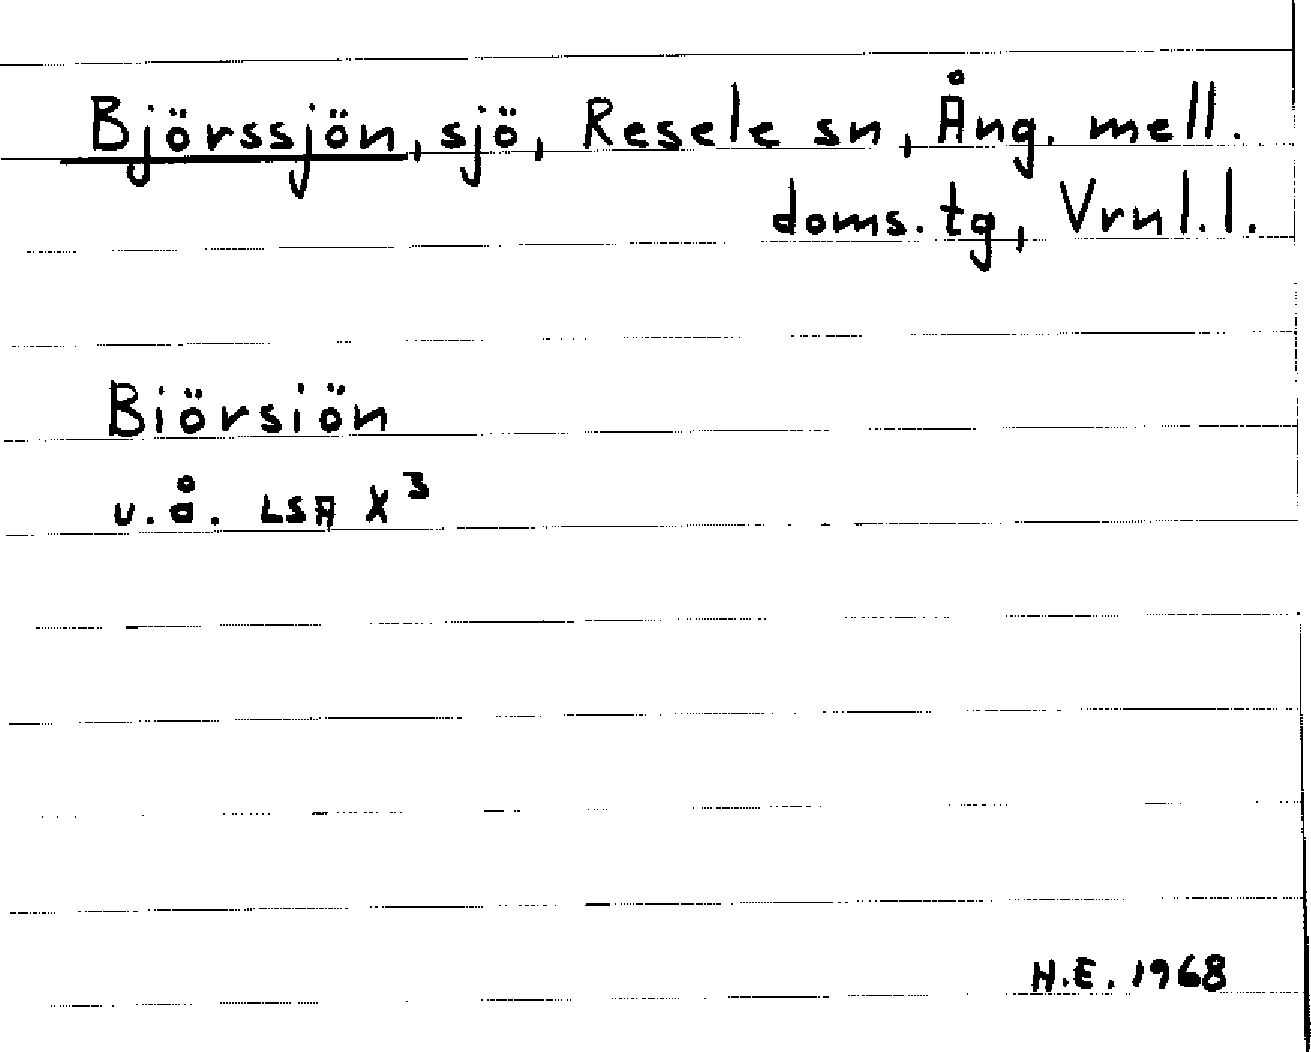 Björssjön, sjö, Resele sn, Ång. mell.
doms. tg, Vrnl. l.
Biörsiön
u.å. LSA X³
H.E. 1968